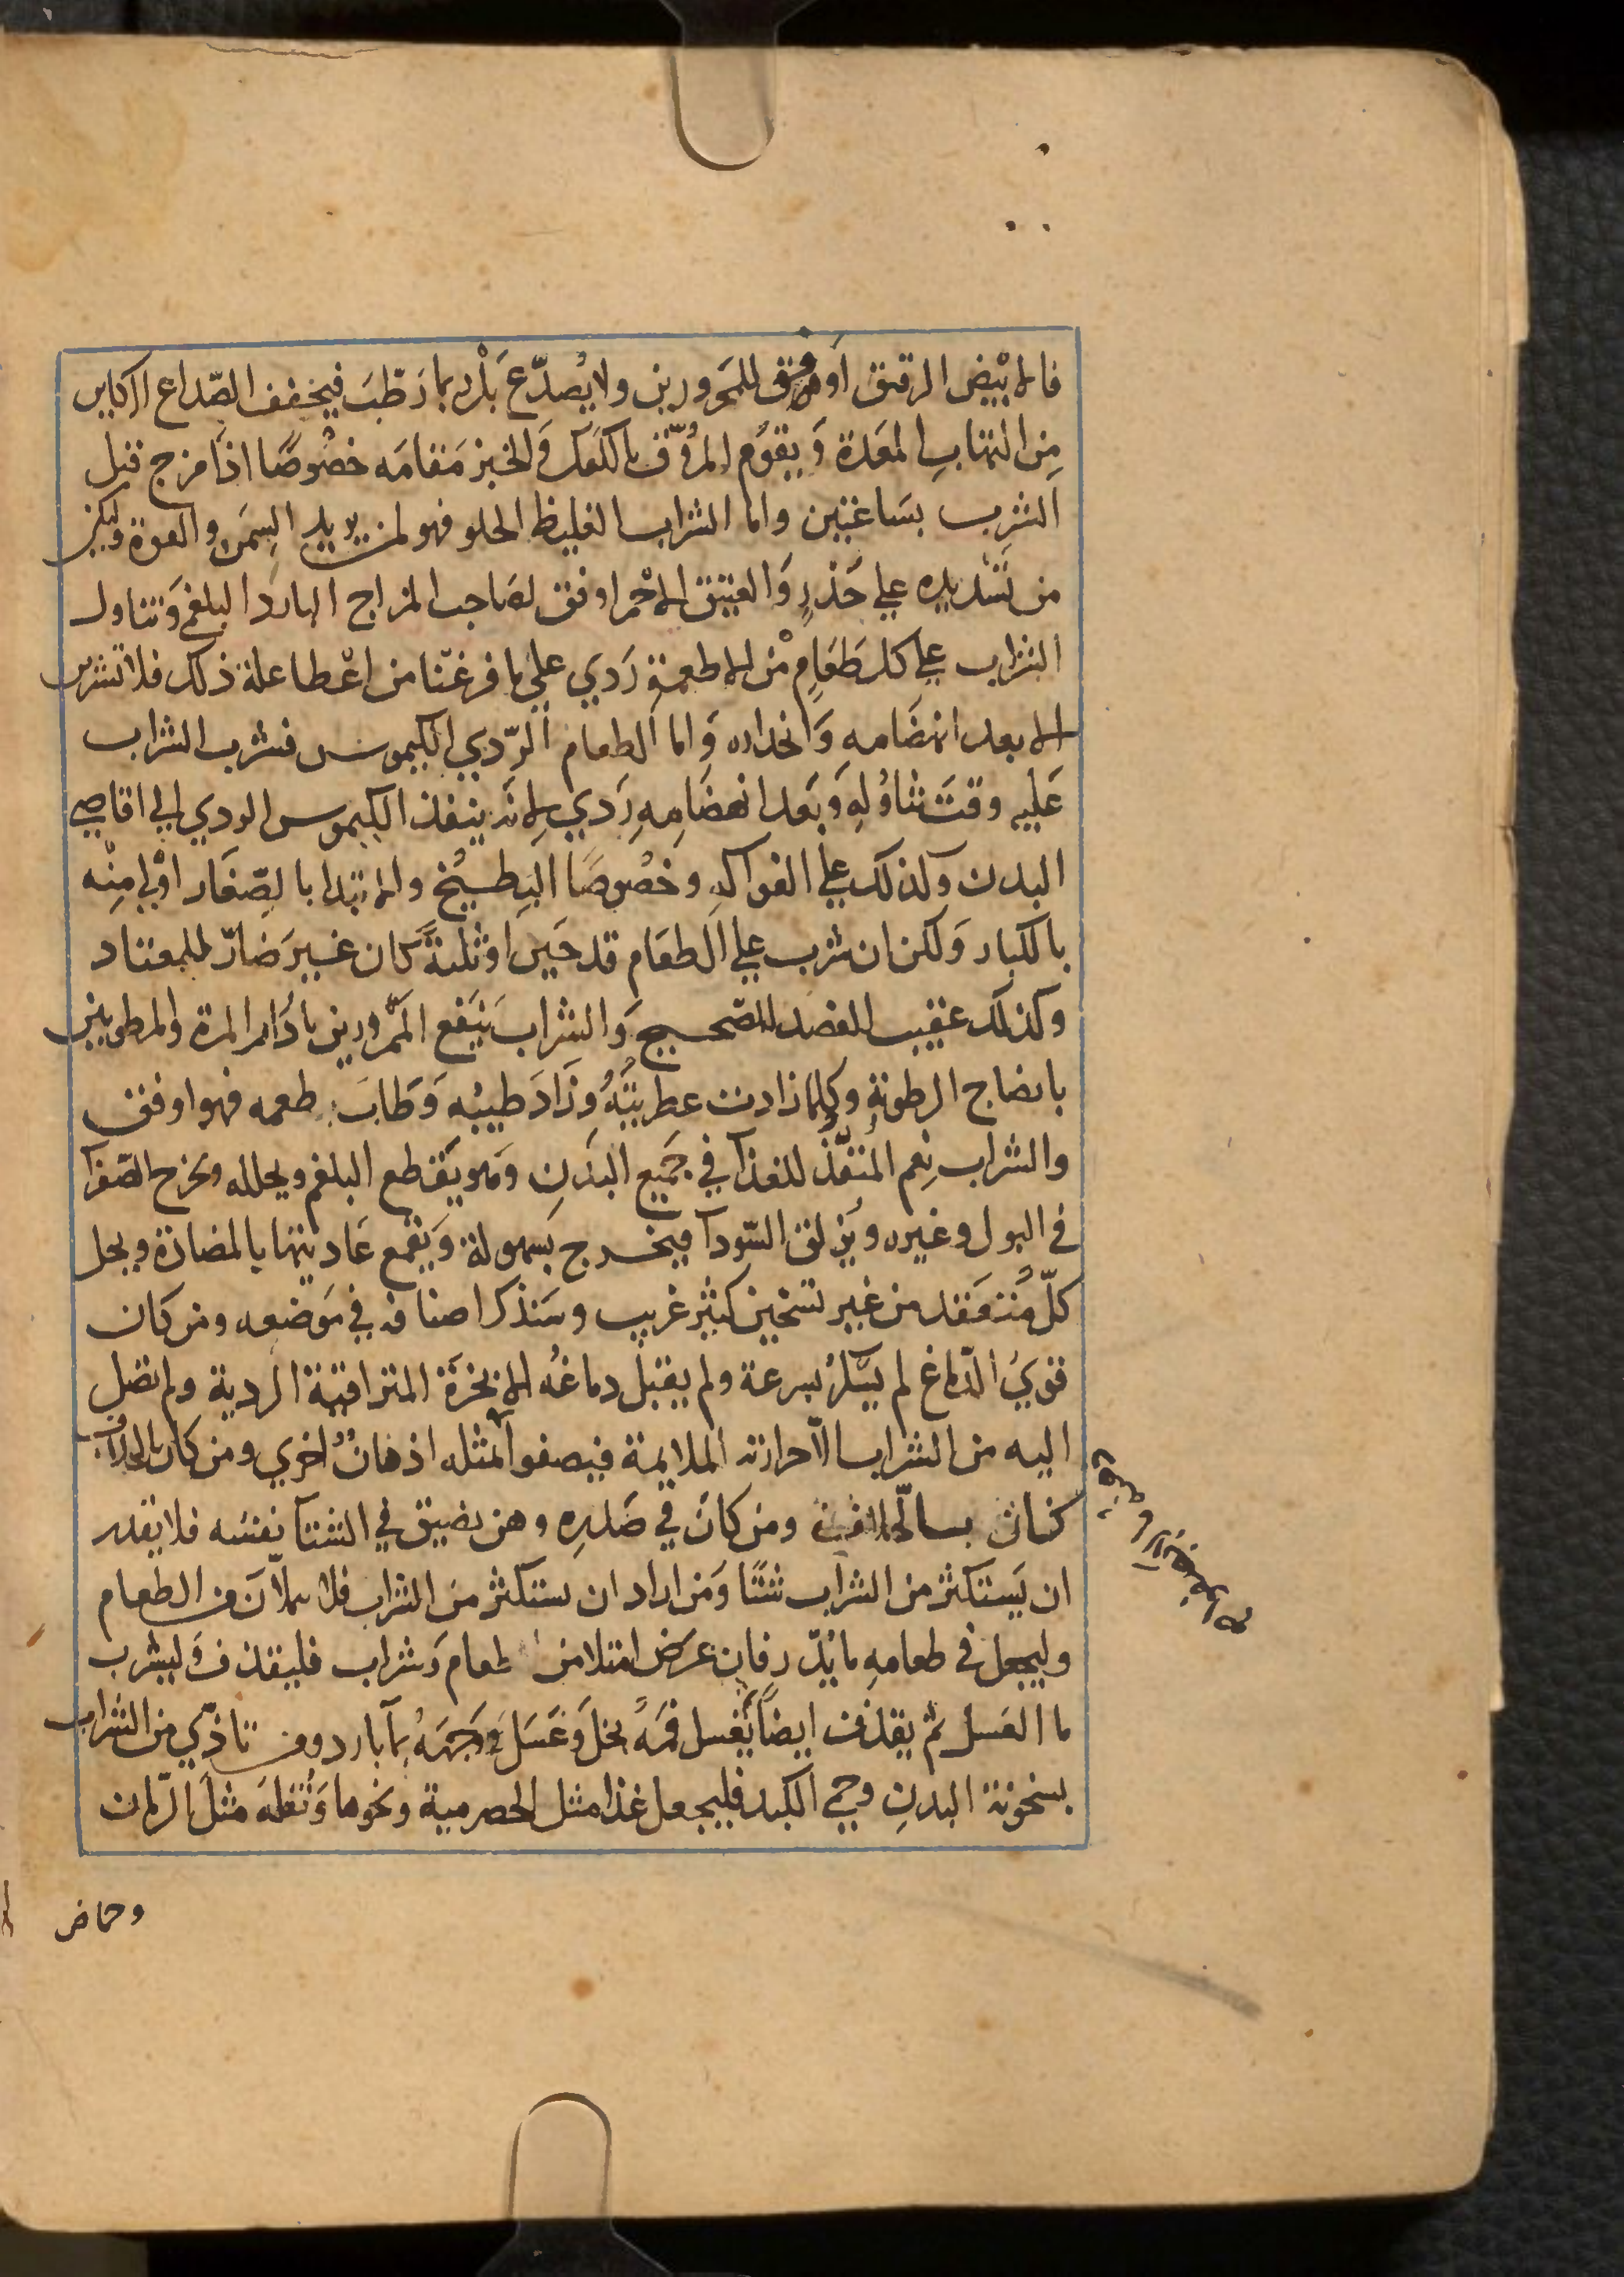 فالابيض الرقيق اوفق للمحرورين ولا يُصدّع بَلْ ربما رَطّبَ فيخفف الصّداع الكاين
مِن التهابِ المعَدة وَيقوُم المرُوّق بالكعَك وَالخبز مَقامَه خصُوصًا اذَا مزج قبل
الشرب بسَاعتين واما الشراب الغليظ الحلو فهو لمن يريد السِمَن والقوة وليكن
من تَسْديده علي حَذرٍ وَالعتيق الاحْمر اوفق لصَاحب المزاج البارد البلغمي وَتناول
الشراب علي كل طَعَامٍ مْن الاطعمة رَدي علي ما فرغنَا من اعْطا علة ذلك فلا تشربن
الا بعد انهضَامهِ وَانحداره وَاما الطعام الرّدي الكيموس فشرب الشراب
عَليه وقتَ تناوُلهِ وَبَعد انهضَامِهِ رَدي لِانَه ينفذ الكيموس الردي الي اقاصي
البدن وكذلك علي الفواكه وخصُوصًا البِطيخ والابتدا بالصّغَار اوْلي مِنْه
بالكبار وَلكن ان شرب علي الطعَام قدحَين اوثلثةً كان غيرَ ضَارّ للمعتاد
وكذلك عقيب الفصد للصّحيح وَالشراب يَنفع الممَرورين بادرَار المرة والمرطوبين
بانضاج الرطوبة وكلما زادت عطريتَهُ وَزَادَ طيبُه وَطَابَ طعمه فهو اوفق
والشراب نِعم المنفّذ للغذآ في جَميع البَدَنِ وَهو يَقطع البلغم ويحلله ويخرج الصّفرآ
في البول وغيره ويُزلق السّودآ فيخرج بسَهولة وَيَقمع عَاديتها بالمضادّة ويحل
كلّ مُنعَقد من غير تسخين كثير غريب وسَنذكر اصنافه في مَوضعه ومن كان
قويَ الدّماغ لم يسَكر بسرعة ولم يقبل دماغُه الابخرَة المتراقية الردية ولم تصل
اليه من الشراب الّا حرارته الملايمة فيصفوا لمثله اذهانٌ اخري ومن كان بالخلاف
كان بالخلاف ومن كانَ في صَدرِه وهن يضيق في الشتآ نفسُه فلا يقدر
ان يَستكثر من الشراب شتًا وَمن اراد ان يستكثر من الشراب فلا يملاَن من الطعام
وليجعل في طعامهِ ما يُدّر فان عَرَض امتلا من طعام وَشراب فليقذف وَليشرب
ما العَسل ثم يقذف ايضًا يَغسل فمَهُ بخل وَعَسَل وَوَجهَهُ بمآ بارد ومن تاذّي من الشراب
بسخونة البدنِ وحمي الكبد فليجعل غذا مثل الحصرمية ونحوها وَنُقلهَ مثلَ الرّمان
وحماض